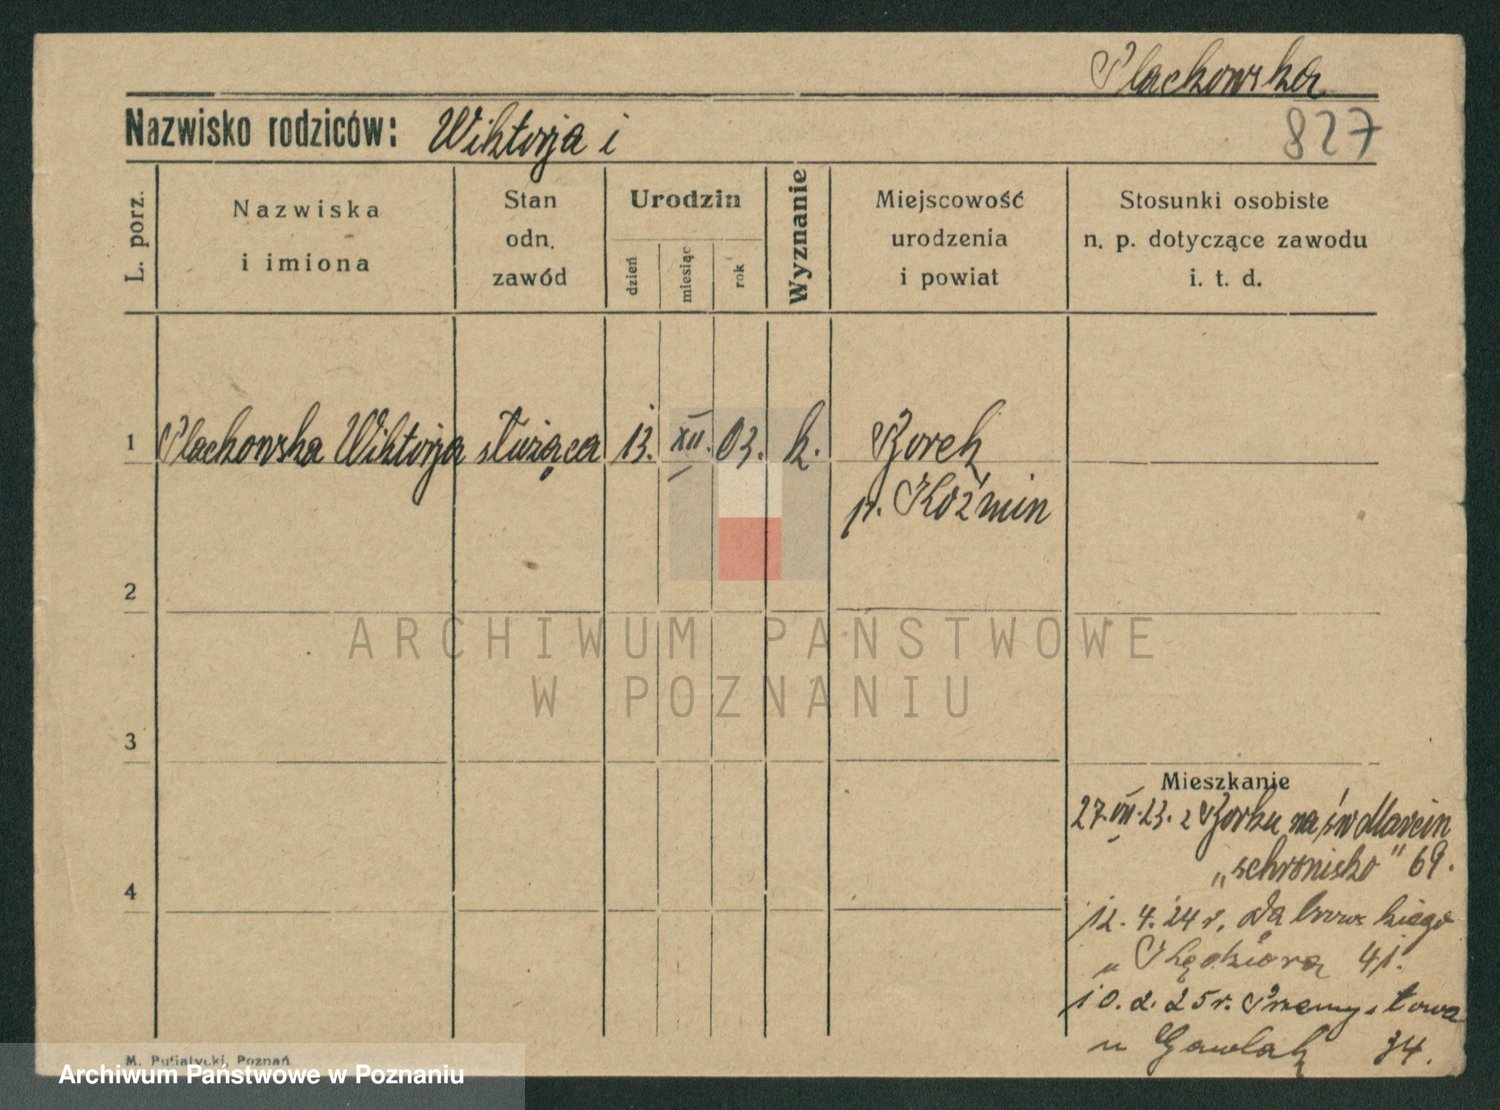 Plackowska
Nazwisko rodziców: Wiktorja i
827
L. porz.
Nazwiska
i imiona
Stan
odn.
zawód
Urodzin
dzień
miesiąc
rok
Wyznanie
Miejscowość
urodzenia
i powiat
Stosunki osobiste
n. p. dotyczące zawodu
i. t. d.
1 Plackowska Wiktorja służąca 13. XII. 03. k. Borek
p. Koźmin
2
ARCHIWUM PAŃSTWOWE
W POZNANIU
3
Mieszkanie
27.VII.23. z Borku na św Marcin
"schronisko" 69.
4
12. 4. 24 r. Dąbrowskiego
u 41.
10. 2. 25 r. Przemysłowa
u Gawlak 34.
M. Putiatycki, Poznań
Archiwum Państwowe w Poznaniu